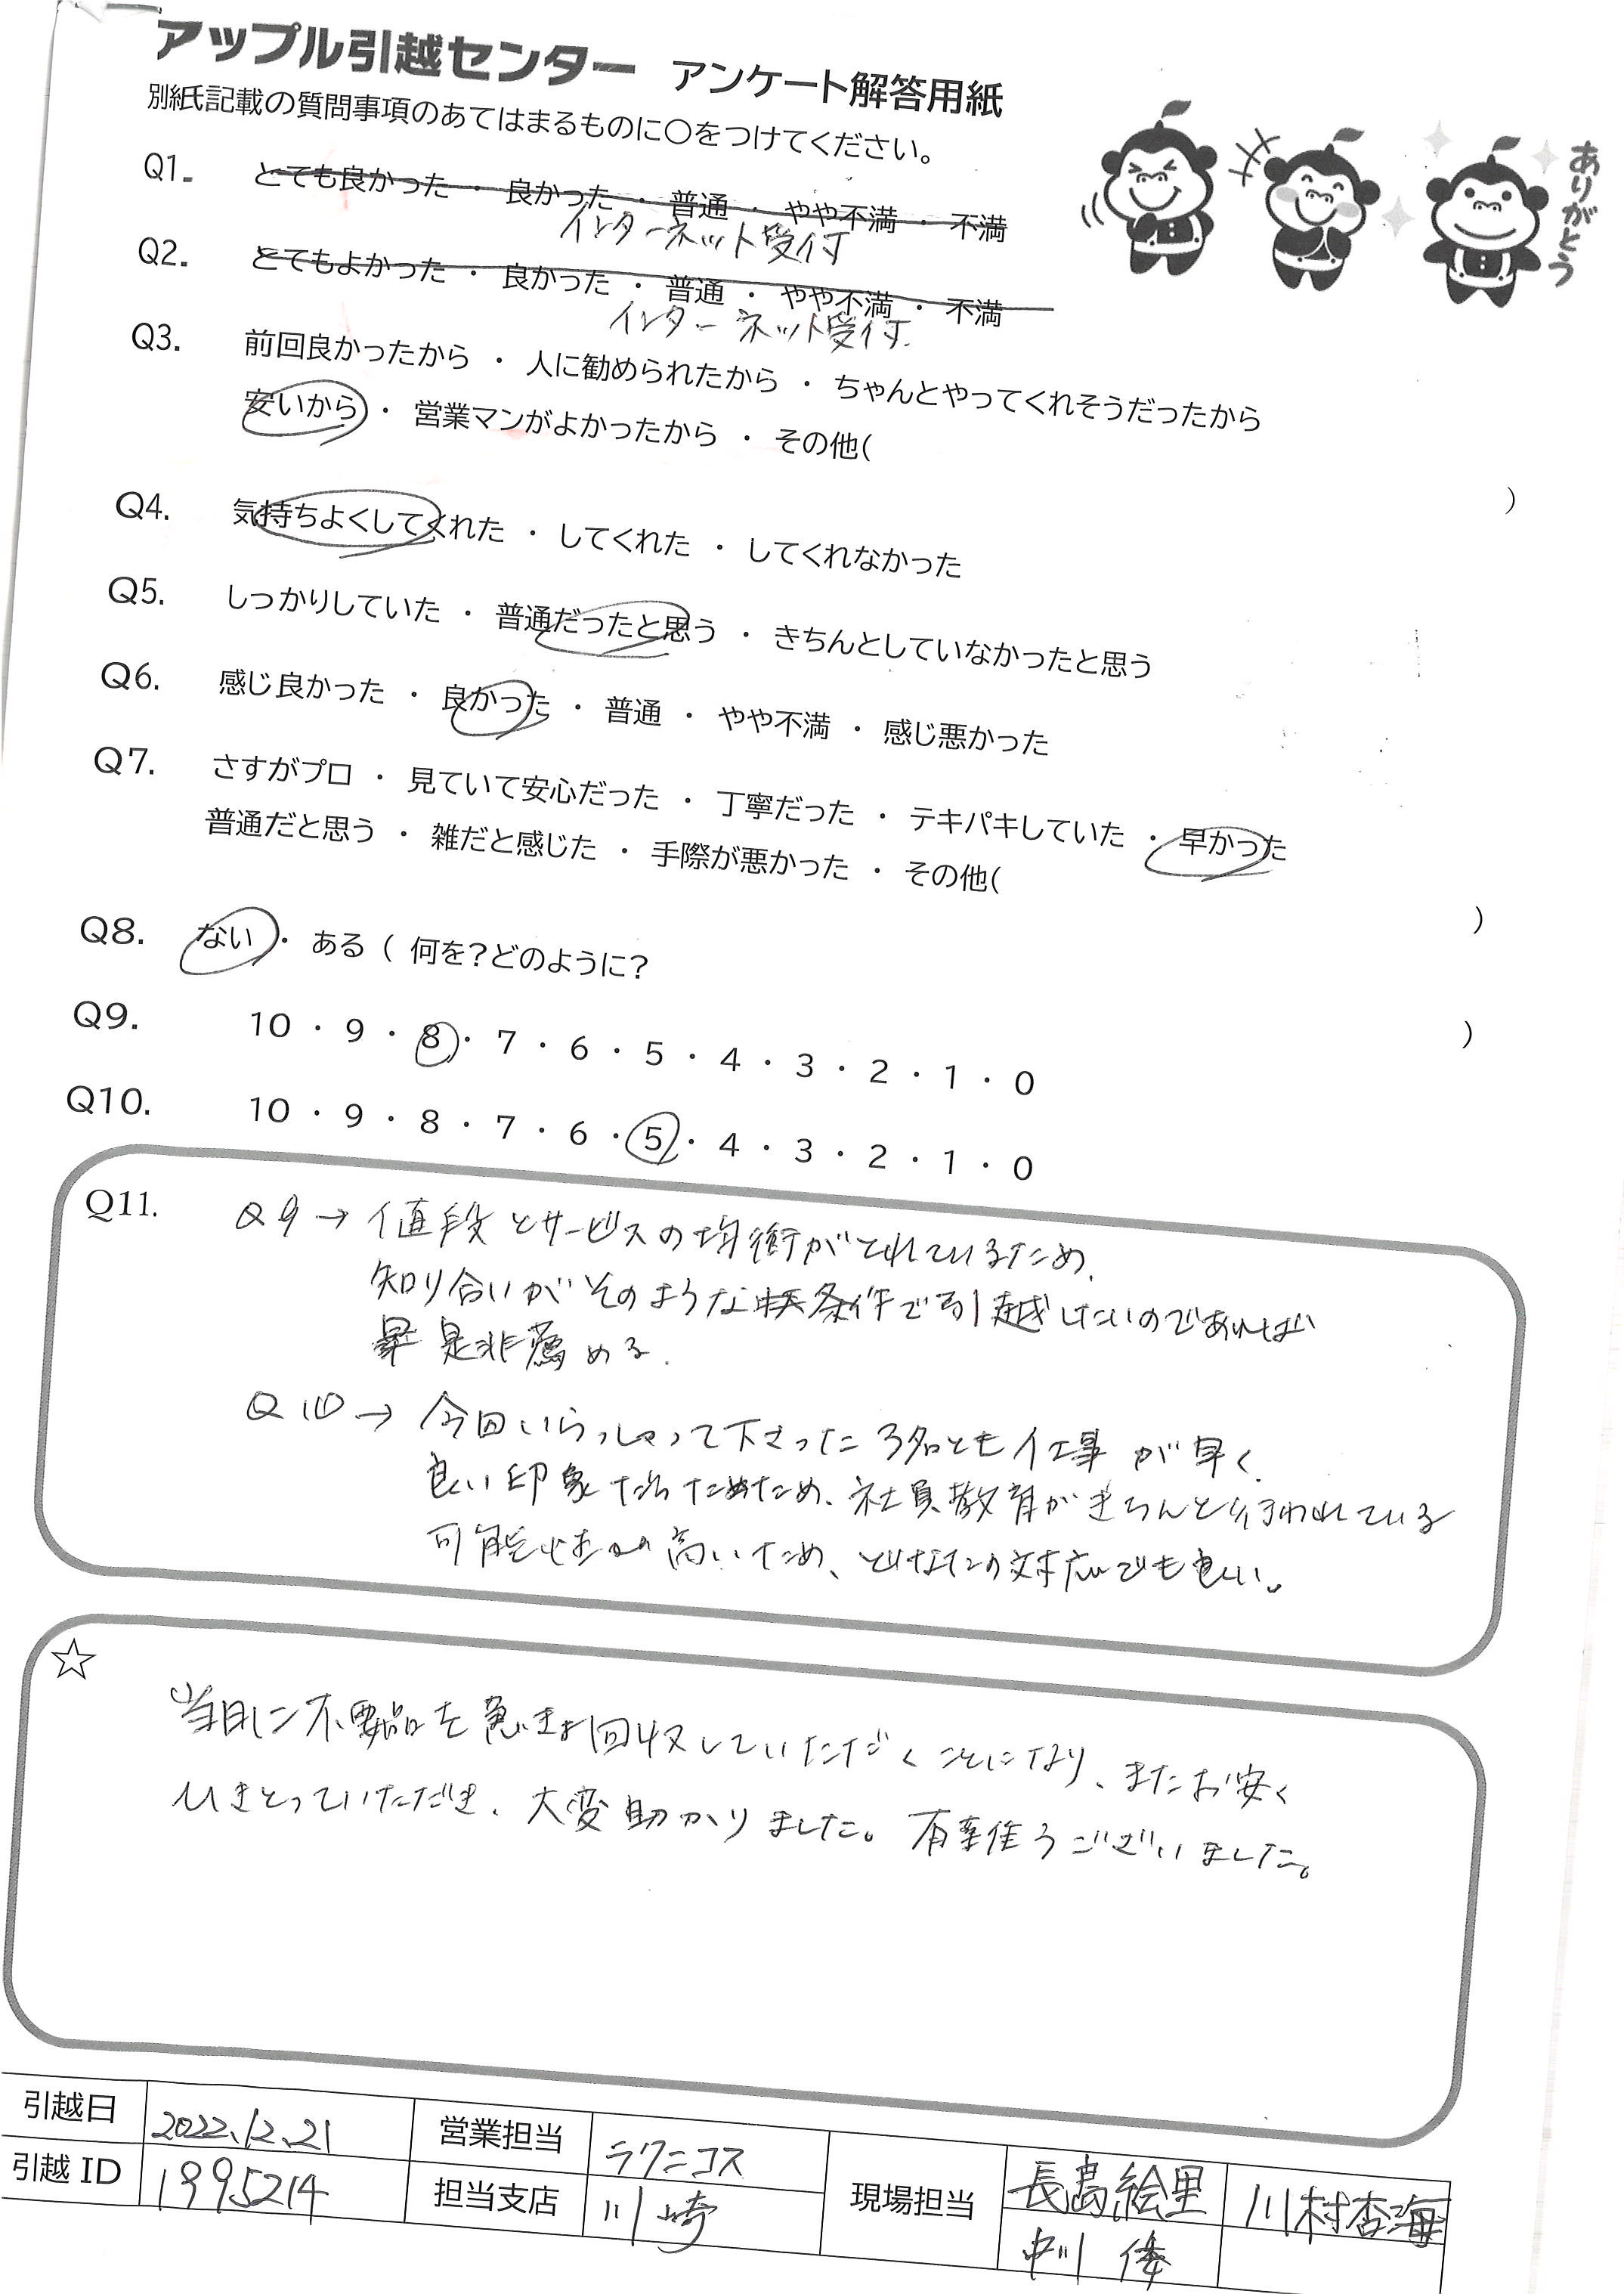 アップル引越センター アンケート解答用紙
別紙記載の質問事項のあてはまるものに〇をつけてください。
ありがとう
Q1. とても良かった ・ 良かった ・ 普通 ・ やや不満 ・ 不満
インターネット受付
Q2. とてもよかった ・ 良かった ・ 普通 ・ やや不満 ・ 不満
インターネット受付.
Q3. 前回良かったから ・ 人に勧められたから ・ ちゃんとやってくれそうだったから
安いから ・ 営業マンがよかったから ・ その他( )
Q4. 気持ちよくしてくれた ・ してくれた ・ してくれなかった
Q5. しっかりしていた ・ 普通だったと思う ・ きちんとしていなかったと思う
Q6. 感じ良かった ・ 良かった ・ 普通 ・ やや不満 ・ 感じ悪かった
Q7. さすがプロ ・ 見ていて安心だった ・ 丁寧だった ・ テキパキしていた ・ 早かった
普通だと思う ・ 雑だと感じた ・ 手際が悪かった ・ その他( )
Q8. ない ・ ある ( 何を?どのように? )
Q9. 10 ・ 9 ・ 8 ・ 7 ・ 6 ・ 5 ・ 4 ・ 3 ・ 2 ・ 1 ・ 0
Q10. 10 ・ 9 ・ 8 ・ 7 ・ 6 ・ 5 ・ 4 ・ 3 ・ 2 ・ 1 ・ 0
Q11. Q9→ 値段とサービスの均衡がとれているため、
知り合いがそのような条件で引越したいのであれば
是非薦める.
Q10→ 今回いらっしゃって下さった3名とも仕事が早く、
良い印象だったため、社員教育がきちんと行われている
可能性が高いため、どなたの対応でも良い。
☆
当日に不要品を急きょ回収していただくことになり、またお安く
ひきとっていただき、大変助かりました。有難うございました。
引越日 2022.12.21 営業担当 ラクニコス 現場担当 長島絵里 川村杏海
引越 ID 1995214 担当支店 川崎 中川